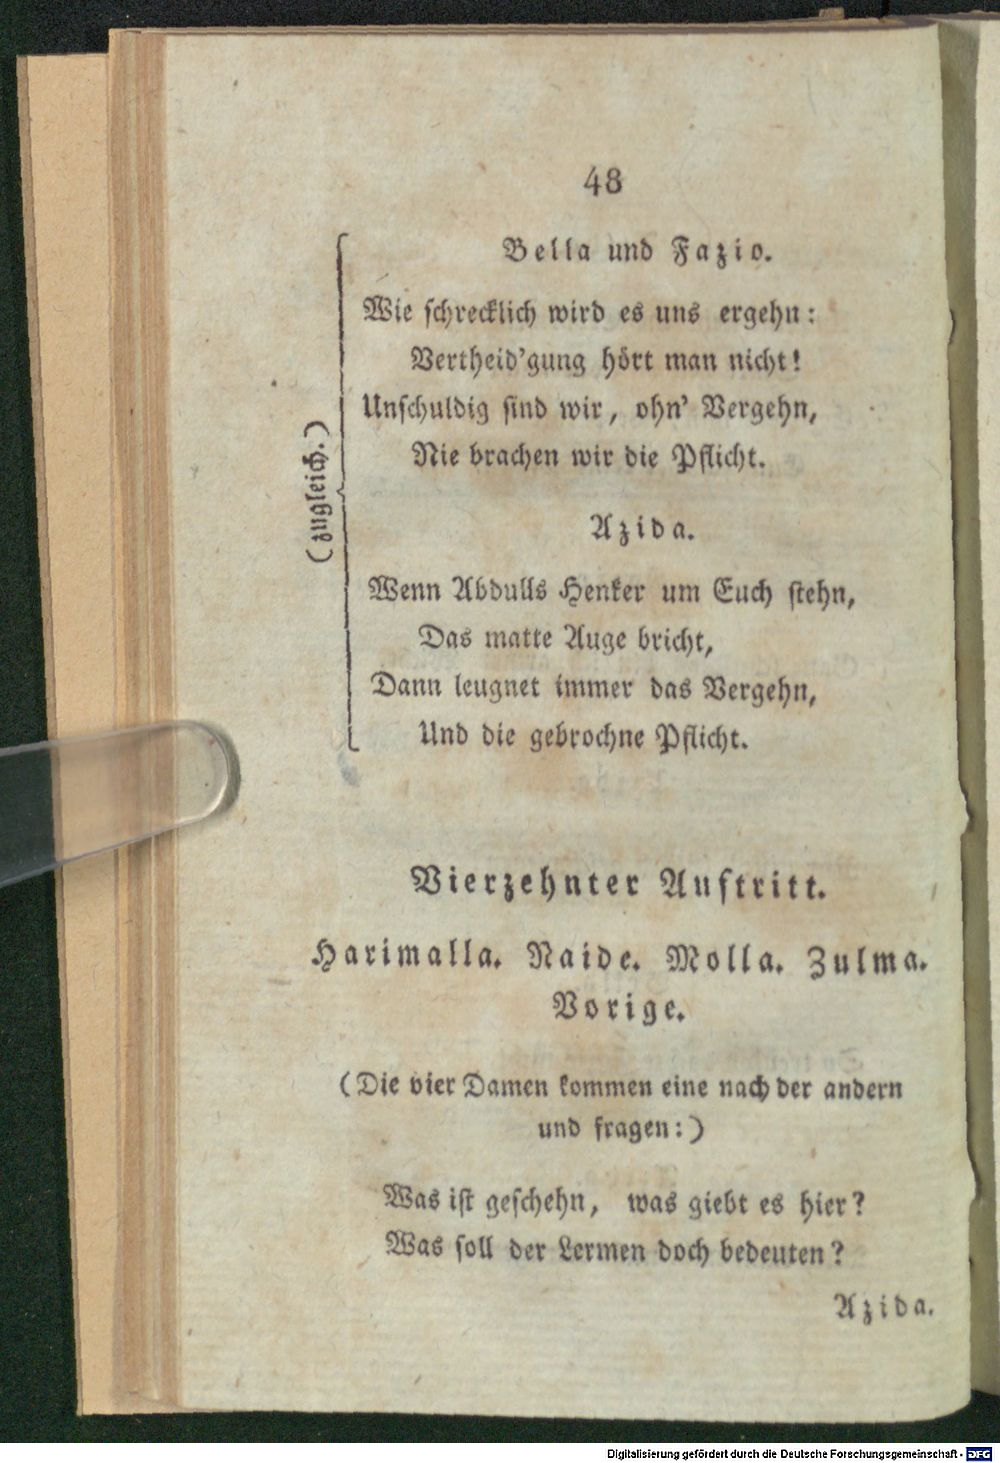 48
Bella und Fazio.
Wie schrecklich wird es uns ergehn:
Vertheid'gung hört man nicht!
Unschuldig sind wir, ohn' Vergehn,
Nie brachen wir die Pflicht.
(zugleich.)
Azida.
Wenn Abdulls Henker um Euch stehn,
Das matte Auge bricht,
Dann leugnet immer das Vergehn,
Und die gebrochne Pflicht.
Vierzehnter Auftritt.
Harimalla. Naide. Molla. Zulma.
Vorige.
(Die vier Damen kommen eine nach der andern
und fragen:)
Was ist geschehn, was giebt es hier?
Was soll der Lermen doch bedeuten?
Azida.
Digitalisierung gefördert durch die Deutsche Forschungsgemeinschaft - DFG